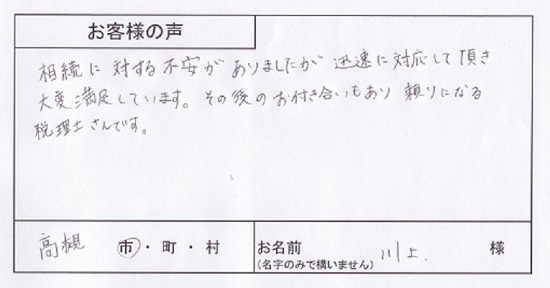 お客様の声
相続に対する不安がありましたが迅速に対応して頂き
大変満足しています。その後のお付き合いもあり頼りになる
税理士さんです。
高槻 市・町・村 お名前 川上 様
(名字のみで構いません)